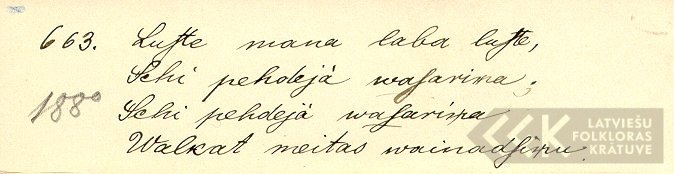 663. Luſte mana laba luſte,
Schi pehdejâ waſariņa;
1880 Schi pehdejâ waſariņa
Walkat meitas wainadſiņu.
LATVIEŠU
FOLKLORAS
KRĀTUVE